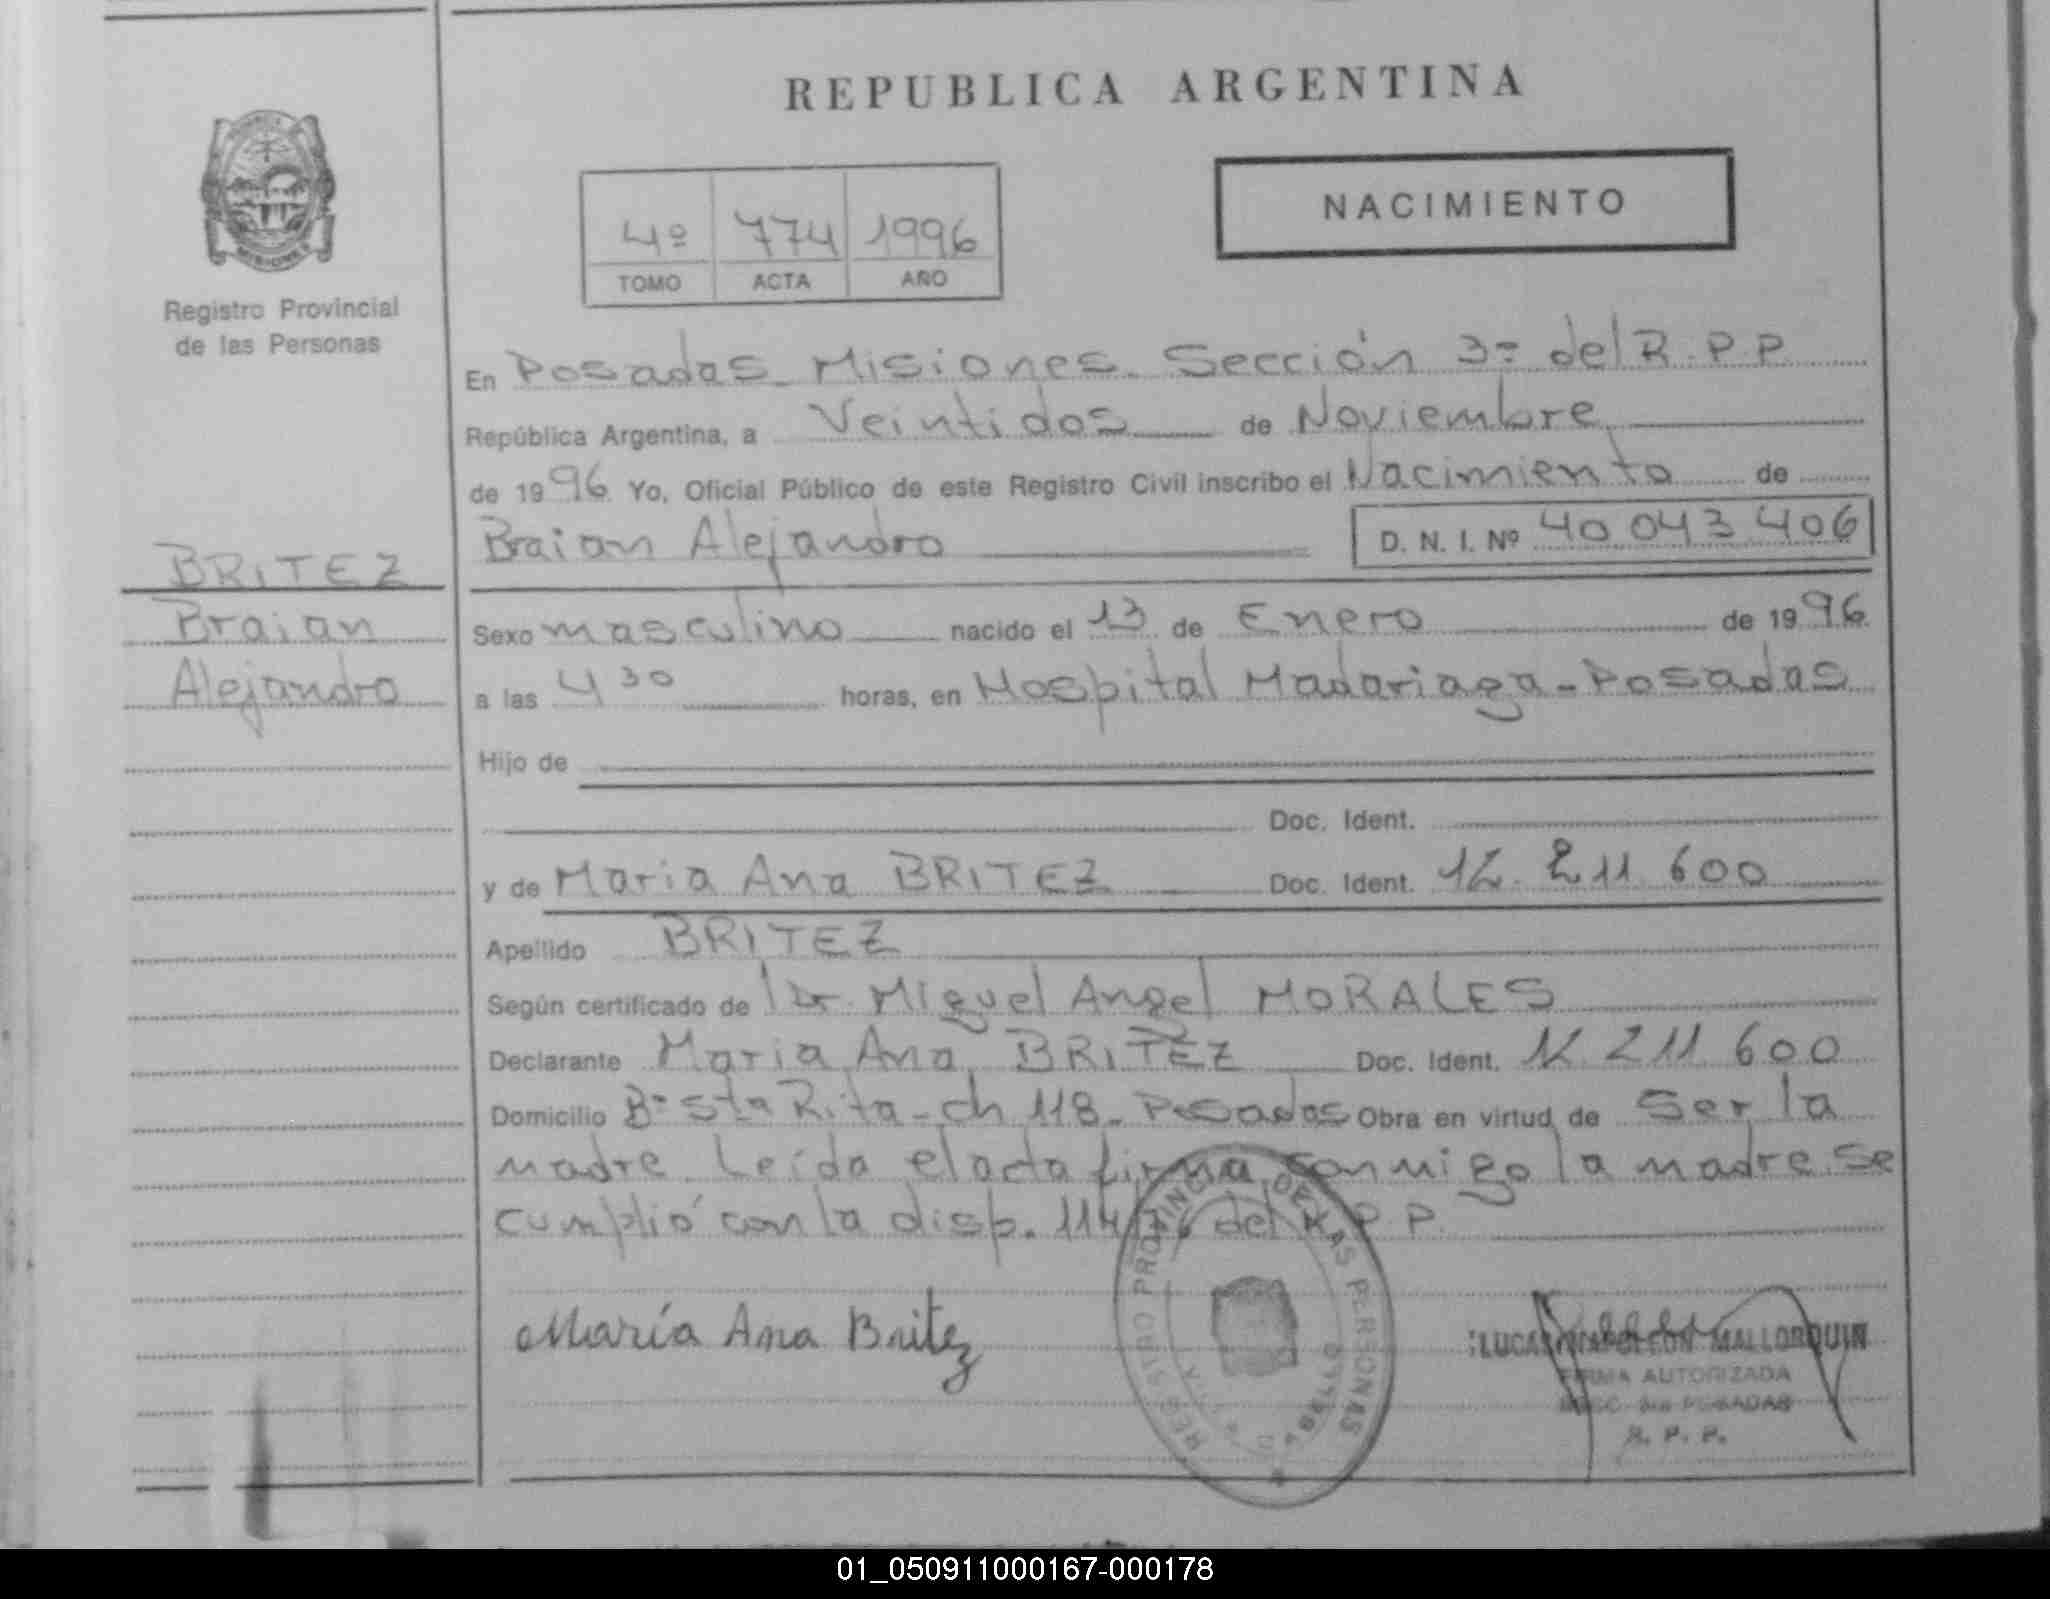 REPUBLICA ARGENTINA
PROVINCIA DE
MISIONES
Registro Provincial
de las Personas
4º 774 1996
TOMO ACTA AÑO
NACIMIENTO
En Posadas Misiones. Sección 3ª del R.P.P
República Argentina, a Veintidos de Noviembre
de 1996. Yo, Oficial Público de este Registro Civil inscribo el Nacimiento de
Braian Alejandro D. N. I. Nº 40 043 406
BRITEZ
Braian
Alejandro
Sexo masculino nacido el 13 de Enero de 1996.
a las 4 30 horas, en Hospital Madariaga - Posadas
Hijo de
Doc. Ident.
y de Maria Ana BRITEZ Doc. Ident. 211 600
Apellido BRITEZ
Según certificado de Dr. Miguel Angel MORALES
Declarante Maria Ana BRITEZ Doc. Ident. 211 600
Domicilio Bº Sta Rita - ch 118 - Posadas Obra en virtud de Ser la
madre. Leída el acta firma conmigo la madre. Se
cumplió con la disp. del R.P.P.
María Ana Britez
REGISTRO PROVINCIAL DE LAS PERSONAS
LUCAS NAPOLEON MALLORQUIN
FIRMA AUTORIZADA
POSADAS
R. P. P.
01_050911000167-000178